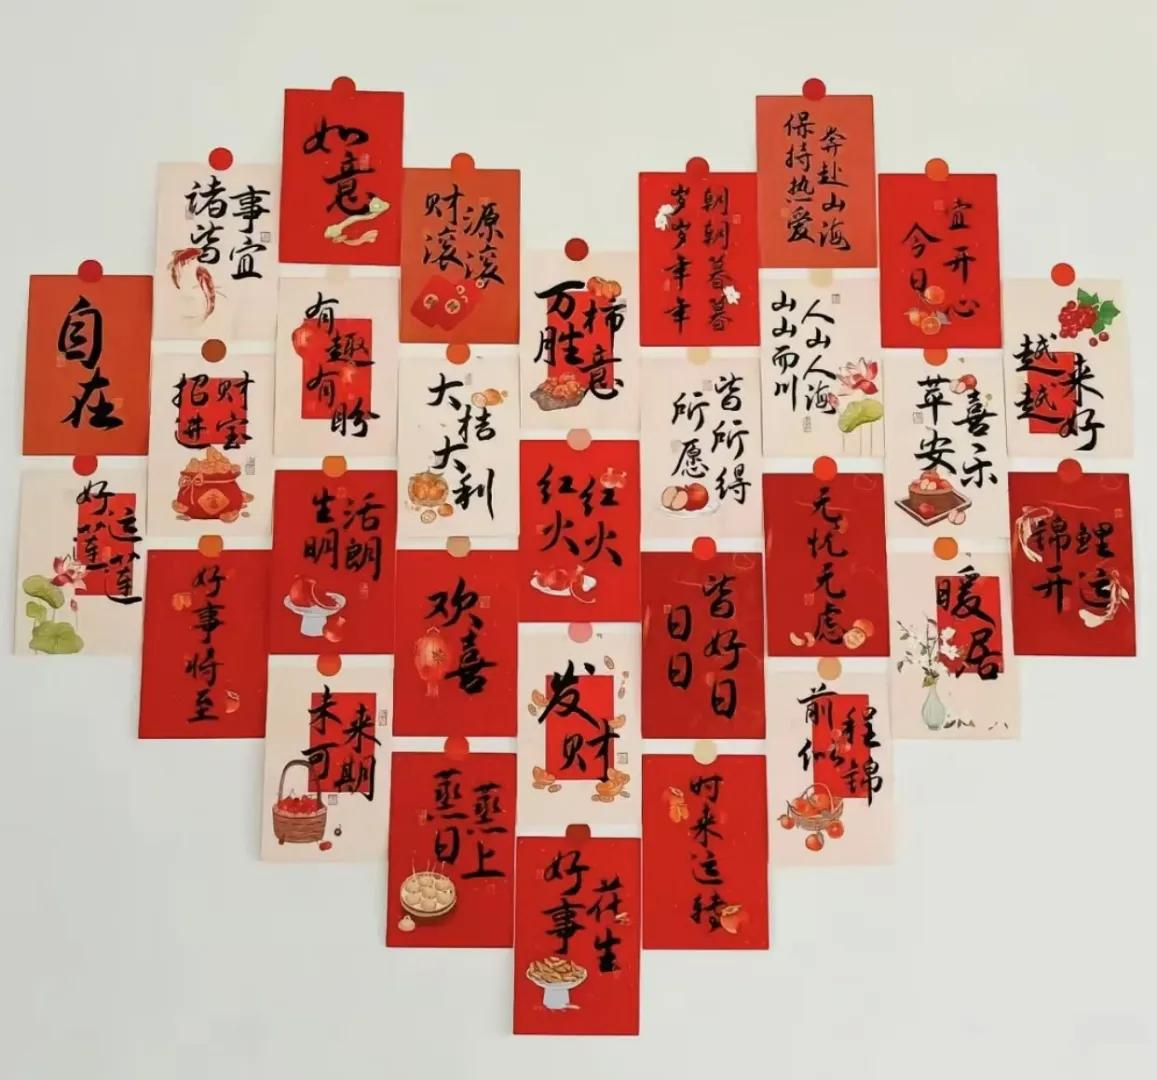 如意
保持热爱
奔赴山海
诸事皆宜
财源滚滚
岁岁年年
朝朝暮暮
今日
宜开心
自在
有趣
有盼
万柿胜意
山山而川
人山人海
越来越好
招财进宝
大桔
大利
所愿
皆所得
苹安
喜乐
好运莲莲
生活明朗
红红火火
无忧无虑
锦鲤开运
好事将至
欢喜
日日
皆好日
暖居
未来可期
发财
前程似锦
蒸蒸日上
时来运转
好事
花生